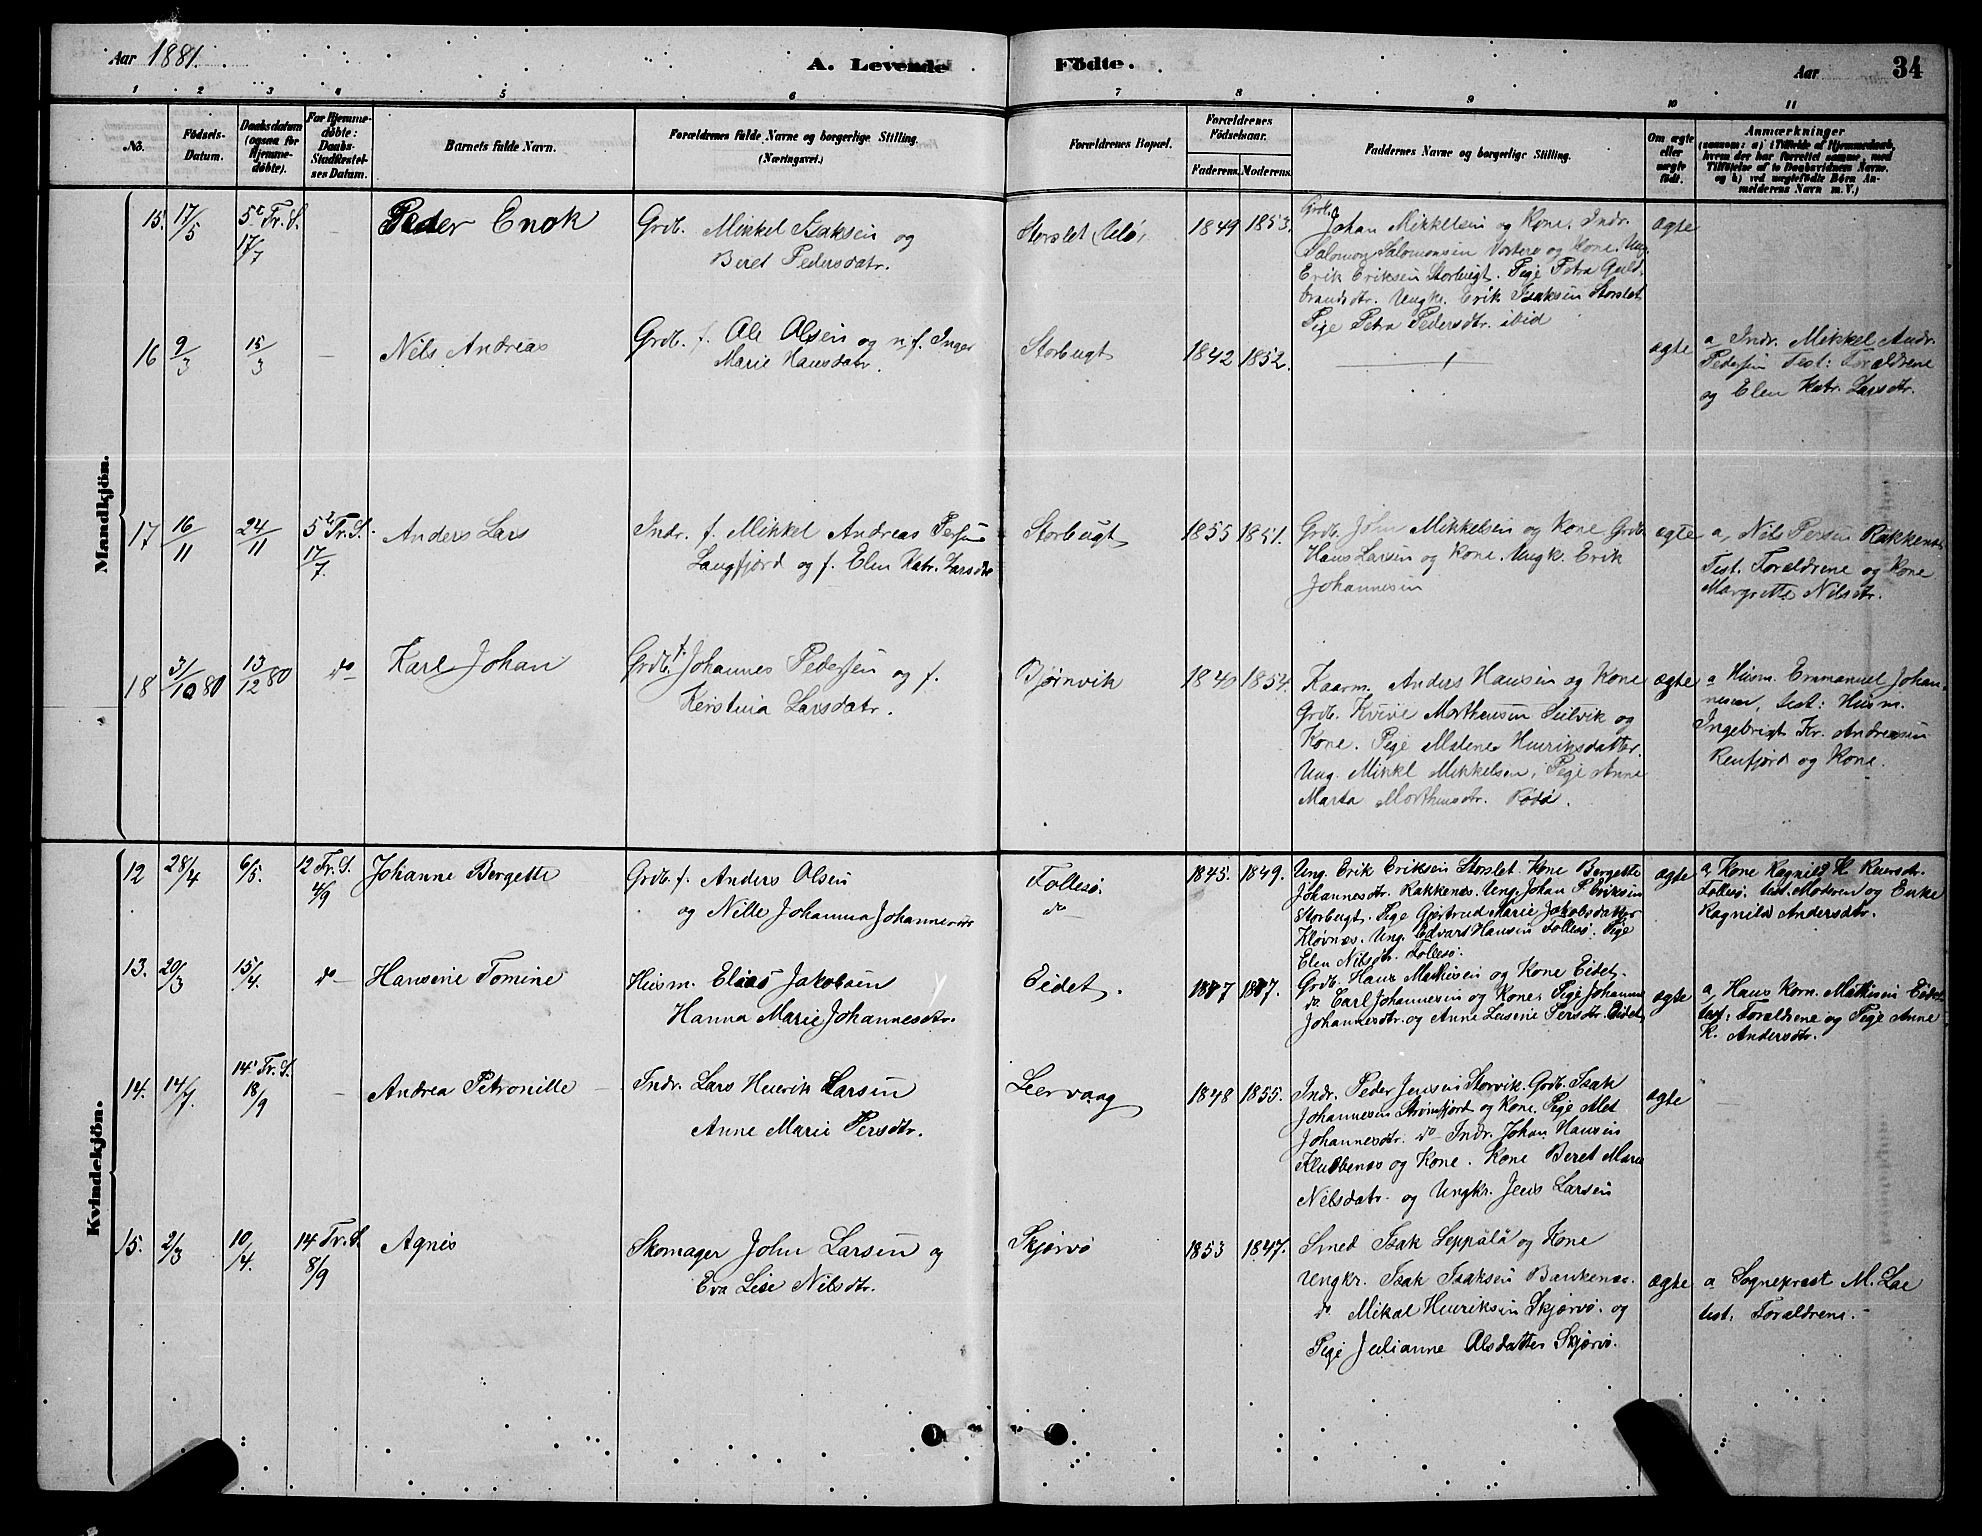 Aar 1881.
A. Levende Födte.
Aar
34
1 2 3 4 5 6 7 8 9 10 11
No.
Födsels-Datum.
Daabsdatum (ogsaa for Hjemmedöbte).
For Hjemmedöbte: Daabs-Stadfæstelses Datum.
Barnets fulde Navn.
Forældrenes fulde Navne og borgerlige Stilling. (Næringsvei.)
Forældrenes Bopæl.
Forældrenes Födselsaar.
Faderens. Moderens.
Faddernes Navne og borgerlige Stilling.
Om ægte eller uægte födt.
Anmærkninger
(saasom: a) i Tilfælde af Hjemmedaab, hvem der har forrettet samme, med Tilföielse af to Daabsvidners Navne. og b) ved uægtefödte Börn Anmelderens Navn m. V.)
Mandkjön.
15. 17/5
5te Tr. S. 17/7
Peder Enok
Grdb. Mikkel Isaksen og
Beret Pedersdatr.
Storslet
1849 1853.
Grdb. Johan Mikkelsen og Kone. Indr.
Salomon Salomonsen Vorterø og Kone. Ung.
Erik Eriksen Storbugt. Pige Petra Guld-
brandsdtr. Ungk. Erik Isaksen Storslet
Pige Petra Pedersdtr. ibid
ægte
16 9/3 15/3 —
Nils Andreas
Grdb. f. Ole Olsen og n.f. Inger
Marie Hansdatr.
Storbugt
1842 1852.
ægte
a Indr. Mikkel Andr.
Pedersen Test: Forældrene
og Elen Katr. Larsdtr.
17 16/11 24/11
5te Tr. S. 17/7.
Anders Lars
Indr. f. Mikkel Andreas Persen
Langfjord og f. Elen Katr. Larsdtr
Storbugt
1855 1851.
Grdb. John Mikkelsen og Kone Grdb.
Hans Larsen og Kone. Ungk. Erik
Johannesen
ægte
a, Nils Persen Rakkenæs
Test. Forældrene og Kone
Margrette Nilsdtr.
18 31/10 80 13/12 80 do
Karl Johan
Grdb. f. Johannes Pedersen og f.
Kerstina Larsdatr.
Bjørnvik
1840 1854.
Kaarm. Anders Hansen og Kone
Grdb. Morthensen og
Kone. Pige Malene Henriksdatter.
Ung. Mikkl Mikkelsen, Pige Anne
Marta Morthensdtr.
ægte
a Husm. Emmanuel Johan-
nesen, test: Husm.
Ingebrigt Kr. Andreasen
Reinfjord og Kone.
Kvindekjön.
12 28/4 6/5.
12 Tr. S. 4/9
Johanne Bergette
Grdb. f. Anders Olsen
og Nille Johanna Johannesdtr
Follesø.
do
1845. 1849.
Ung. Erik Eriksen Storslet. Kone Bergette
Johannesdtr. Rakkenæs. Ung. Johan P. Eriksen
Storbugt. Pige Gjertrud Marie Jakobsdatter
Kløvnæs. Ung. Edvart Hansen Follesø. Pige
Elen Nilsdtr. Follesø.
ægte
a, Kone Ragnild K.
Follesø. test. Moderen og Enke
Ragnild Andersdtr.
13. 20/3 15/4. do
Hansene Tomine
Husm. Elias Jakobsen
Hanna Marie Johannesdtr.
Eidet.
Grdb. Hans Mathisen og Kone Eidet.
do Carl Johannesen og Kone. Pige Johanne
Johannesdtr. og Anne Lusene Persdtr. Eidet.
ægte
a, Hans Korn. Mathisen Eidet
test: Forældrene og Pige Anne
K. Andersdtr.
14. 14/7.
14 Tr. S. 18/9 —
Andrea Petronille
Indr. Lars Henrik Larsen
Anne Marie Persdtr.
Leervaag
1848 1855.
Indr. Peder Jensen Storvik. Grdb. Isak
Johannesen Strømfjord og Kone. Pige Met
Johannesdtr. do Indr. Johan Hansen
Klubbenæs og Kone. Kone Beret Marie
Nilsdatr. og Ungkr. Jens Larsen
ægte
15. 2/3 10/4.
14 Tr. S. 8/9
Agnis
Skomager John Larsen og
Eva Lise Nilsdtr.
Skjørvø
1853 1847.
Smed Isak Seppälä og Kone
Ungkr. Isak Isaksen Bankenæs.
do Mikal Henriksen Skjørvø. og
Pige Julianne Olsdatter Skjørvø.
ægte
a Sogneprest M. Lae
test. Forældrene.